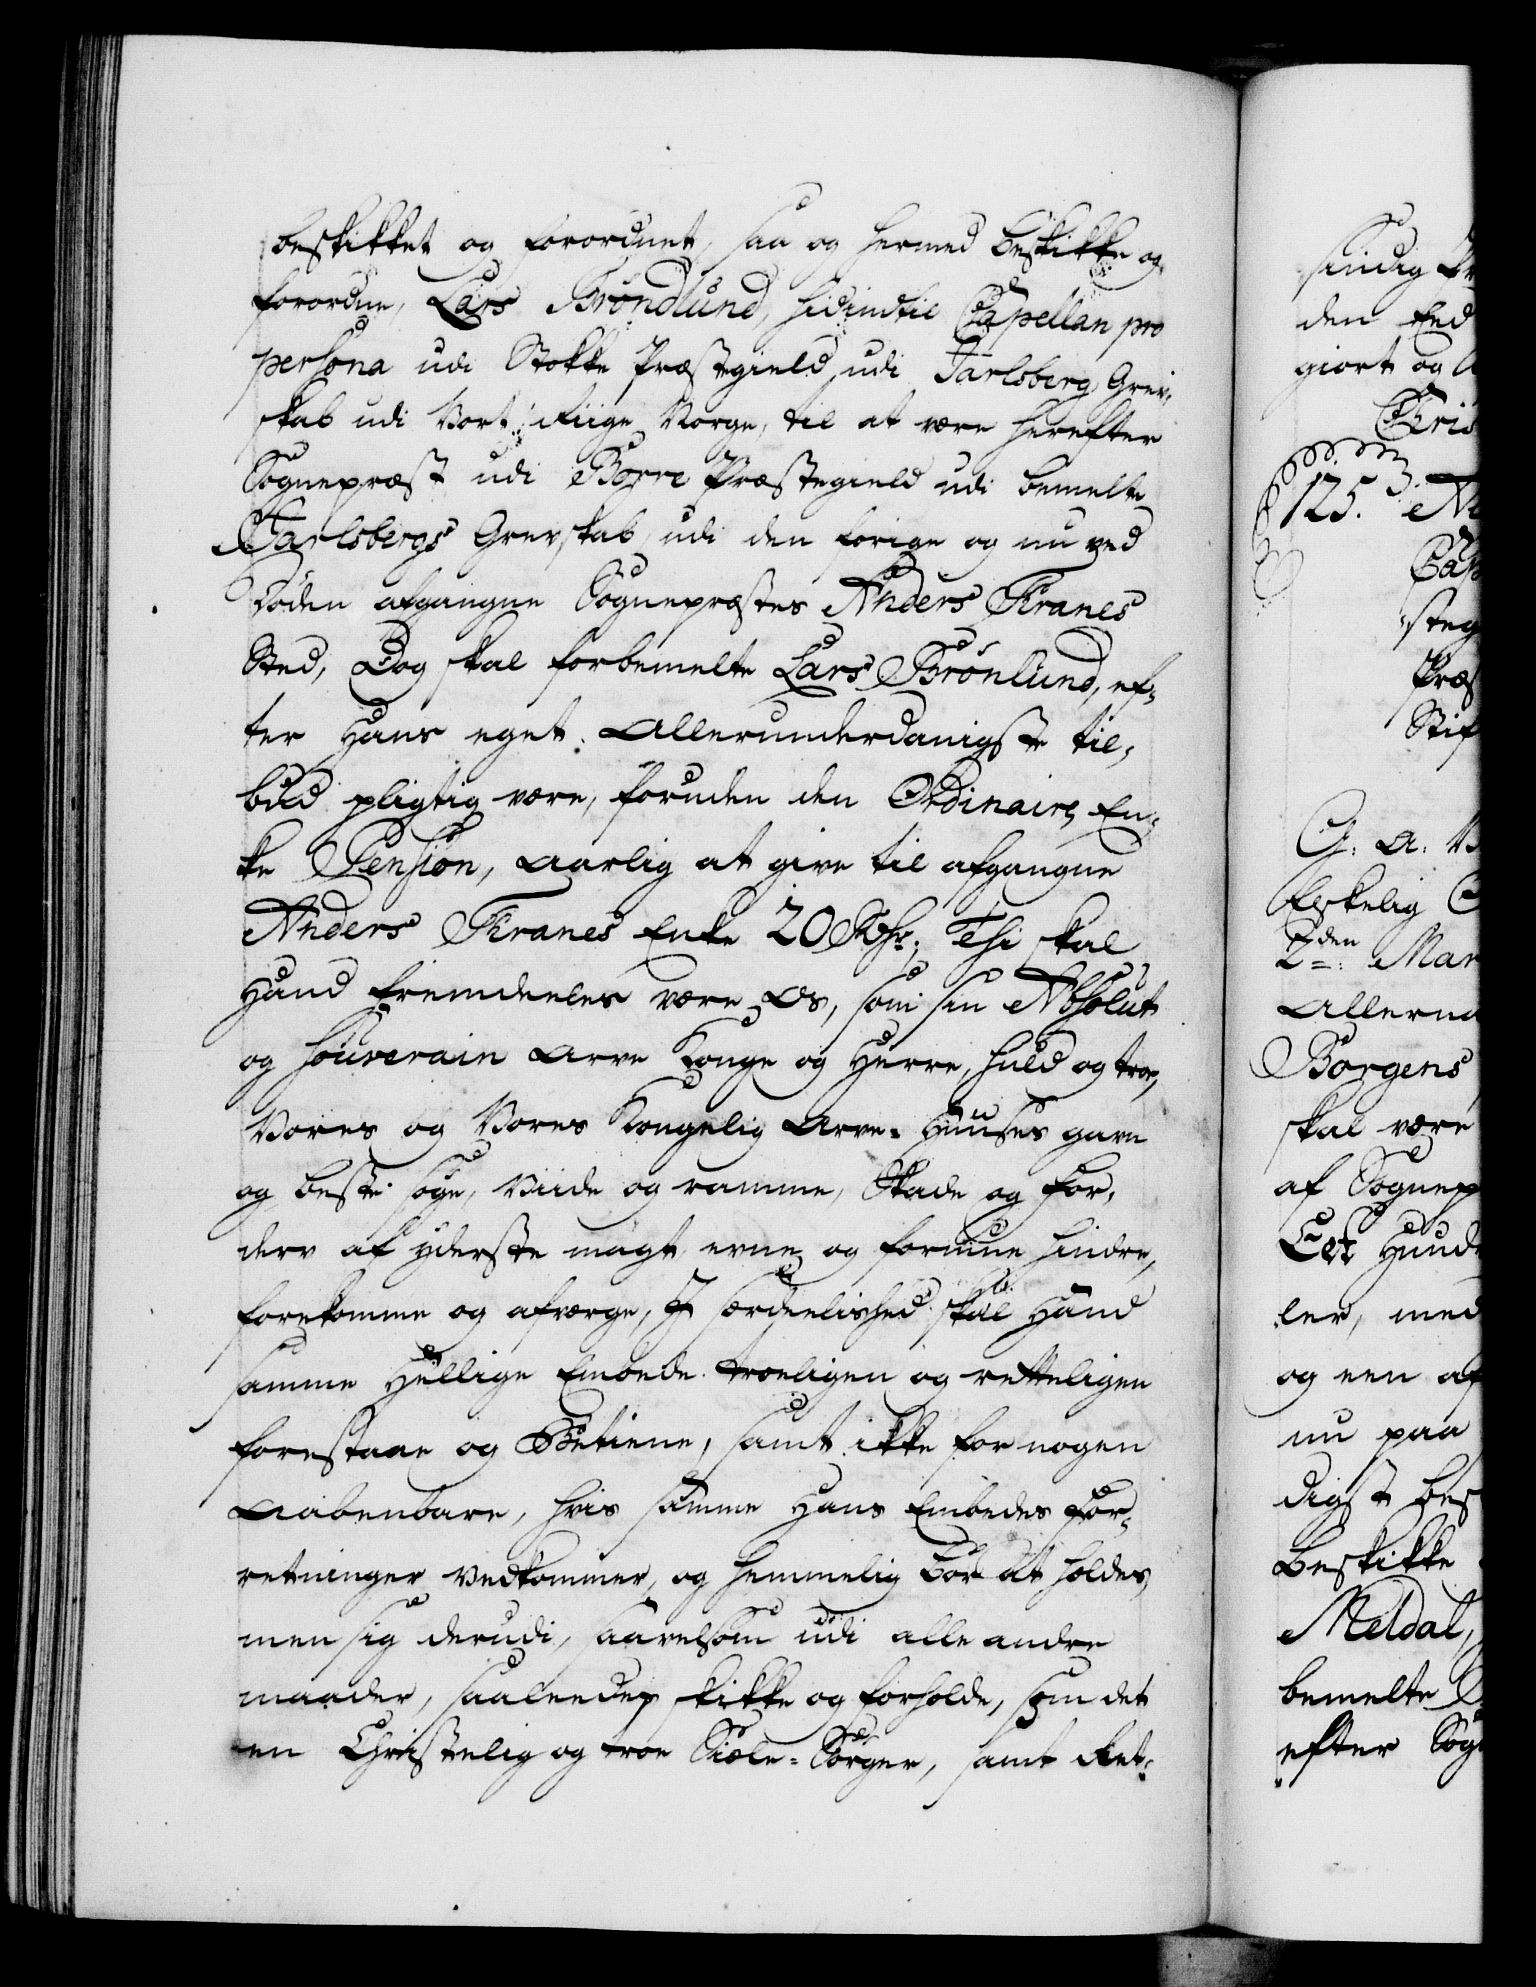 beskikket og forordnet, saa og hermed beskikke og
forordne, Lars Brøndlund, hidindtil Capellan pro
persona udi Stokke Præstegield udi Jarlsberg Grev,
skab udi Vort Riige Norge, til at være herefter
Sognepræst udi Borre Præstegield udi bemelte
Jarlsbergs Grevskab, udi den forige og nu ved
Døden afgangne Sognepræstes Anders Kranes
Sted, Dog skal forbemelte Lars Brønlund, ef,
ter Hans eget allerunderdanigste til,
bud pligtig være, foruden den Ordinaire En,
ke Pension, aarlig at give til afgangne
Anders Kranes Enke 20 Rdr; Thi skal
Hand fremdeeles være Os, som sin Absolut
og souverain Arve Konge og Herre, huld og troe,
Vores og Vores Kongelig Arve-Huuses gavn
og beste søge, Viide og ramme, Skade og For,
derv af yderste magt evne og formue hindre,
forekomme og afværge, I særdeelished skal Hand
samme Hellige Embede troeligen og retteligen
forestaae og Betiene, samt ikke for nogen
aabenbare, hvis samme Hans Embedes For,
retninger vedkommer, og hemmelig bør at holdes,
men sig derudi, saavelsom udi alle andre
maader, saaleedes skikke og forholde, som det
en Christelig og troe Siæle-Sørger, samt Ret-
sindig
den Eed
giort og
Chris
125.
Cap
steg
Præs
Stif
G: A: V
Elskelig
2den Mar
Allerna
Borgens
skal være
af Sognep
Eet Hundr
ler, med
og een af
nu paa
digst bes
beskikke
Meldal,
bemelte
efter Sog